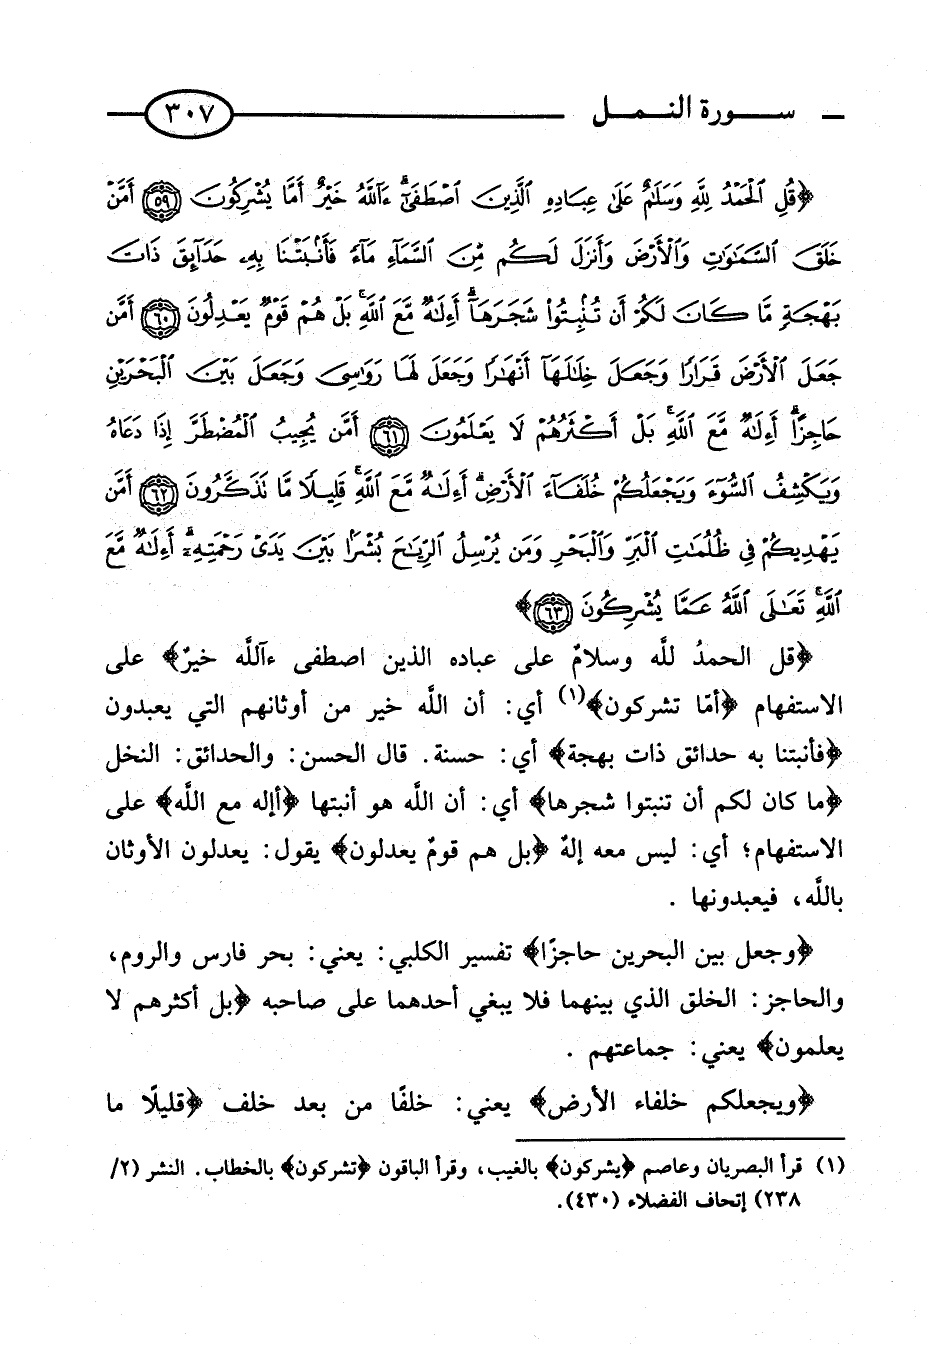 سورة النمل ٣٠٧
﴿قُلِ ٱلْحَمْدُ لِلَّهِ وَسَلَـٰمٌ عَلَىٰ عِبَادِهِ ٱلَّذِينَ ٱصْطَفَىٰٓ ۗ ءَآللَّهُ خَيْرٌ أَمَّا يُشْرِكُونَ ٥٩ أَمَّنْ
خَلَقَ ٱلسَّمَـٰوَٰتِ وَٱلْأَرْضَ وَأَنزَلَ لَكُم مِّنَ ٱلسَّمَآءِ مَآءً فَأَنۢبَتْنَا بِهِۦ حَدَآئِقَ ذَاتَ
بَهْجَةٍ مَّا كَانَ لَكُمْ أَن تُنۢبِتُوا۟ شَجَرَهَآ ۗ أَءِلَـٰهٌ مَّعَ ٱللَّهِ ۚ بَلْ هُمْ قَوْمٌ يَعْدِلُونَ ٦٠ أَمَّن
جَعَلَ ٱلْأَرْضَ قَرَارًا وَجَعَلَ خِلَـٰلَهَآ أَنْهَـٰرًا وَجَعَلَ لَهَا رَوَٰسِىَ وَجَعَلَ بَيْنَ ٱلْبَحْرَيْنِ
حَاجِزًا ۗ أَءِلَـٰهٌ مَّعَ ٱللَّهِ ۚ بَلْ أَكْثَرُهُمْ لَا يَعْلَمُونَ ٦١ أَمَّن يُجِيبُ ٱلْمُضْطَرَّ إِذَا دَعَاهُ
وَيَكْشِفُ ٱلسُّوٓءَ وَيَجْعَلُكُمْ خُلَفَآءَ ٱلْأَرْضِ ۗ أَءِلَـٰهٌ مَّعَ ٱللَّهِ ۚ قَلِيلًا مَّا تَذَكَّرُونَ ٦٢ أَمَّن
يَهْدِيكُمْ فِى ظُلُمَـٰتِ ٱلْبَرِّ وَٱلْبَحْرِ وَمَن يُرْسِلُ ٱلرِّيَـٰحَ بُشْرًۢا بَيْنَ يَدَىْ رَحْمَتِهِۦٓ ۗ أَءِلَـٰهٌ مَّعَ
ٱللَّهِ ۚ تَعَـٰلَى ٱللَّهُ عَمَّا يُشْرِكُونَ ٦٣﴾
﴿قل الحمدُ للَّه وسلامٌ على عباده الذين اصطفى ءآللَّه خيرٌ﴾ على
الاستفهام ﴿أمّا تشركون﴾(١) أي: أن اللَّه خير من أوثانهم التي يعبدون
﴿فأنبتنا به حدائق ذات بهجة﴾ أي: حسنة. قال الحسن: والحدائق: النخل
﴿ما كان لكم أن تنبتوا شجرها﴾ أي: أن اللَّه هو أنبتها ﴿أإله مع اللَّه﴾ على
الاستفهام؛ أي: ليس معه إلهٌ ﴿بل هم قومٌ يعدلون﴾ يقول: يعدلون الأوثان
باللَّه، فيعبدونها .
﴿وجعل بين البحرين حاجزًا﴾ تفسير الكلبي: يعني: بحر فارس والروم،
والحاجز: الخلق الذي بينهما فلا يبغي أحدهما على صاحبه ﴿بل أكثرهم لا
يعلمون﴾ يعني: جماعتهم .
﴿ويجعلكم خلفاء الأرض﴾ يعني: خلفًا من بعد خلف ﴿قليلًا ما
(١) قرأ البصريان وعاصم ﴿يشركون﴾ بالغيب، وقرأ الباقون ﴿تشركون﴾ بالخطاب. النشر (٢/
٢٣٨) إتحاف الفضلاء (٤٣٠).